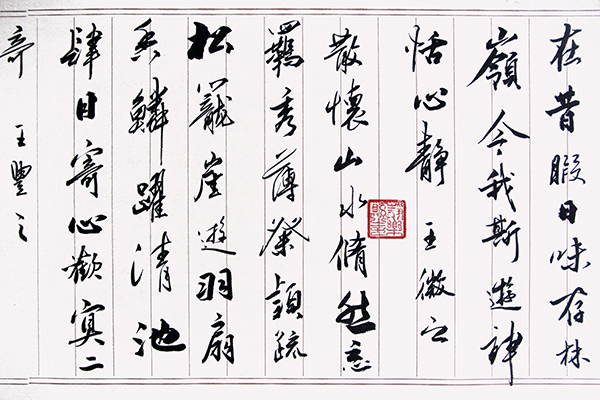 在昔暇日味存林
嶺今我斯遊神
恬心静 王徽之
散懷山水脩然忘
羈秀薄粲穎疏
松籠崖遊羽扇
霄鱗躍清池
肆目寄心歡冥二
奇 王豐之